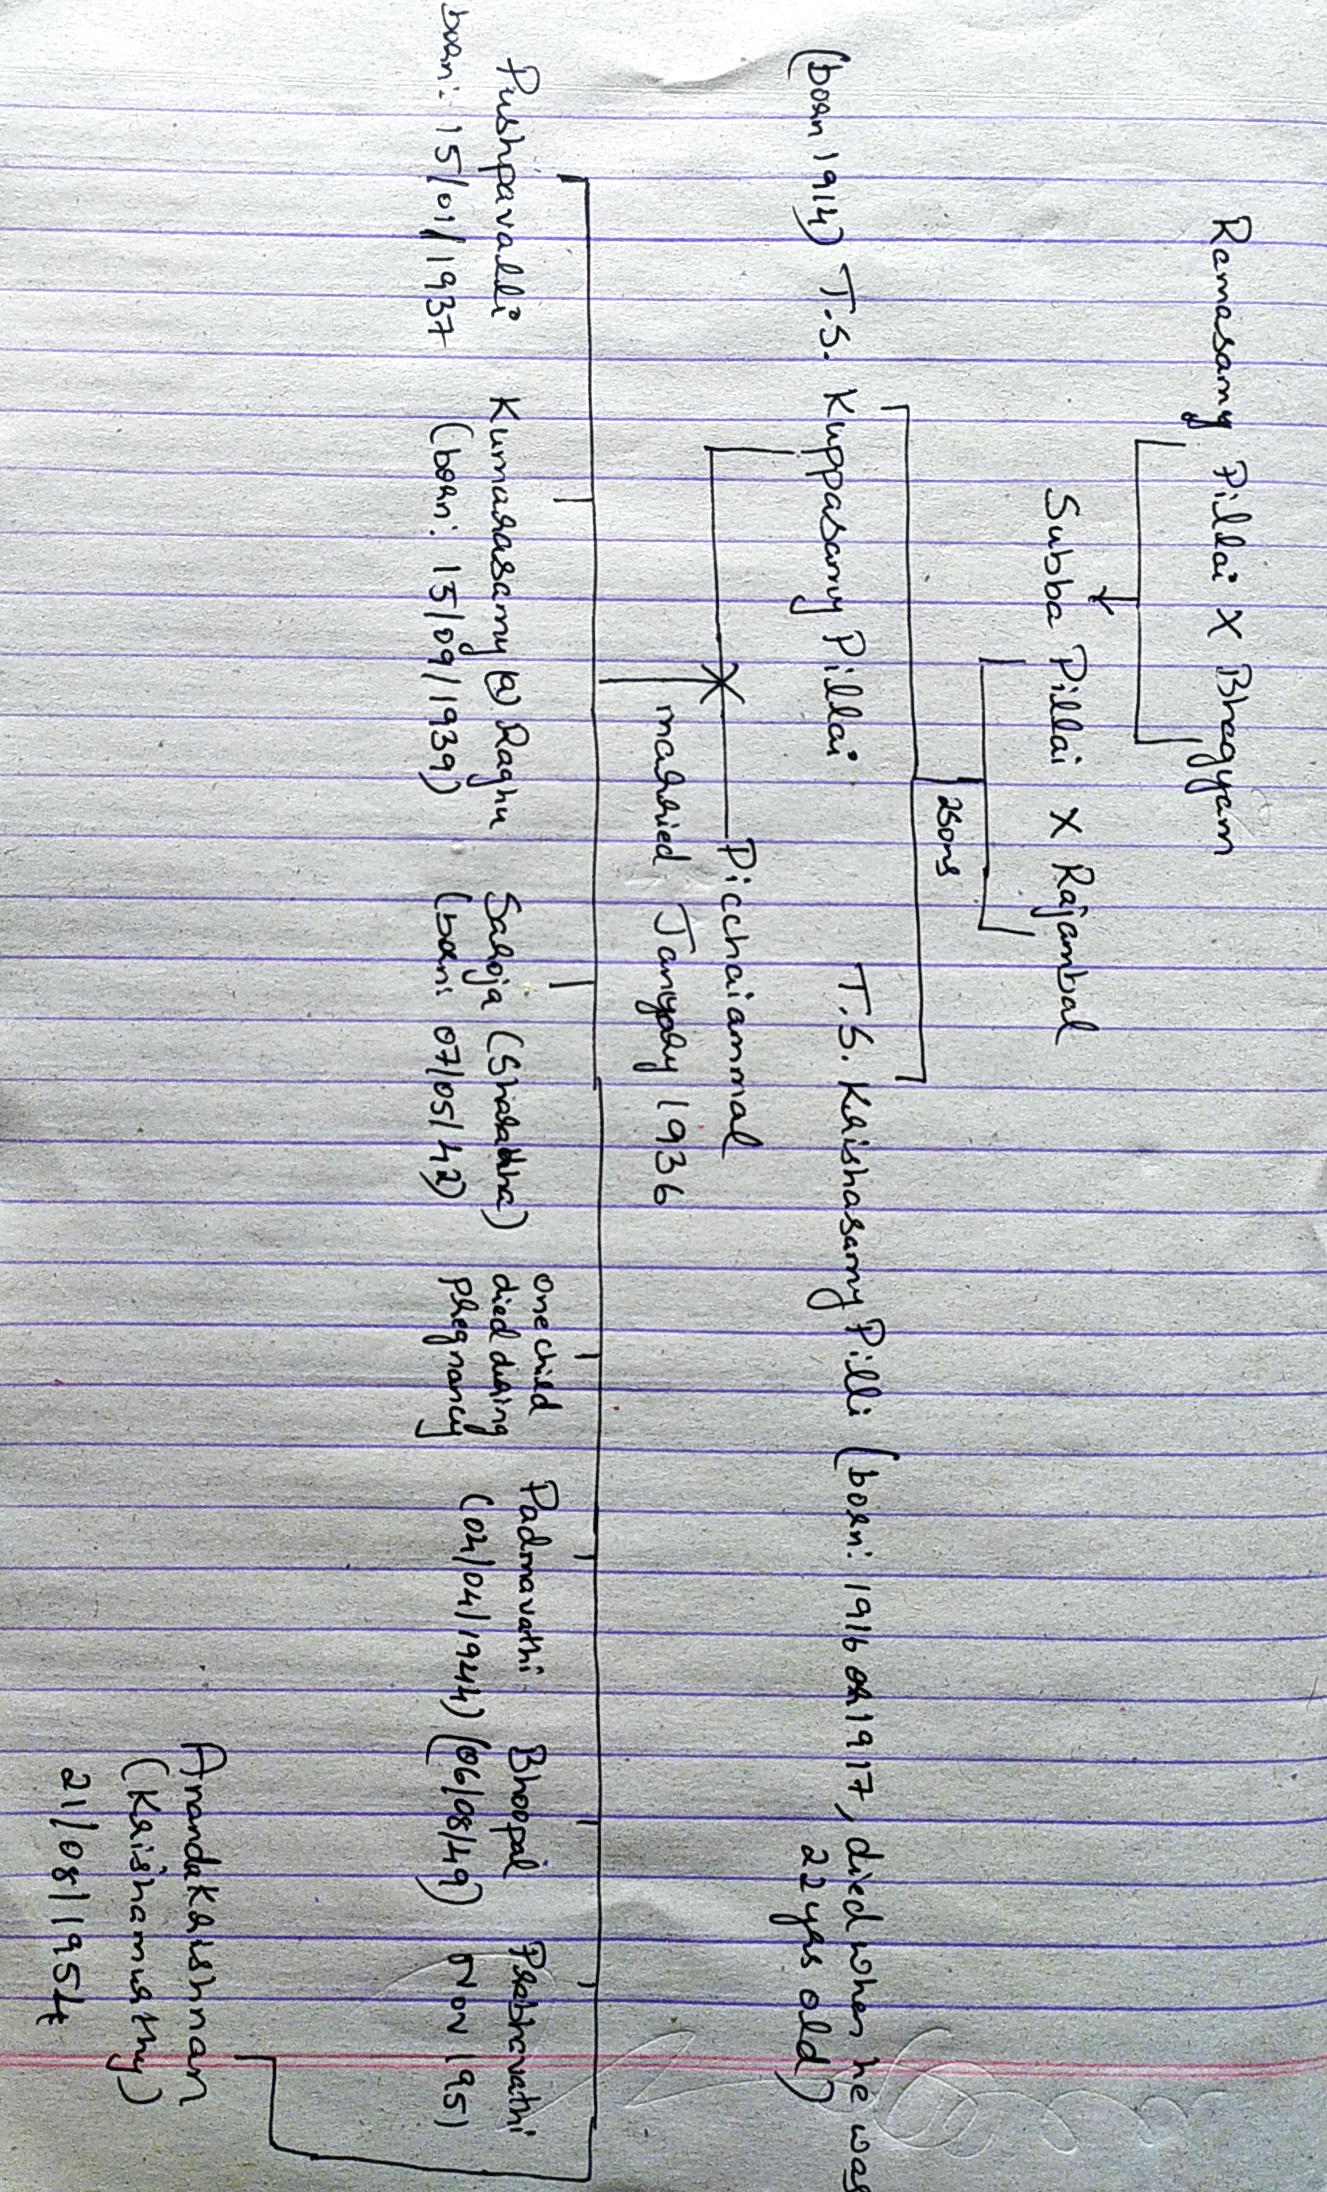 Ramasamy Pillai X Bhagyam
Subba Pillai X Rajambal
2sons
(born 1914) T.S. Kuppasamy Pillai
T.S. Krishasamy Pilli (born: 1916 or 1917, died when he was
22 yrs old)
Picchaiammal
married January 1936
Pushpavalli
born: 15/01/1937
Kumarasamy (a) Raghu
(born: 13/09/1939)
Saroja (Sharadha)
(born: 07/05/42)
one child
died during
pregnancy
Padmavathi
(04/04/1944)
Bhoopal
(06/08/49)
Prabhavathi
Nov 1951
AnandaKrishnan
(Krishamurthy)
21/08/1954